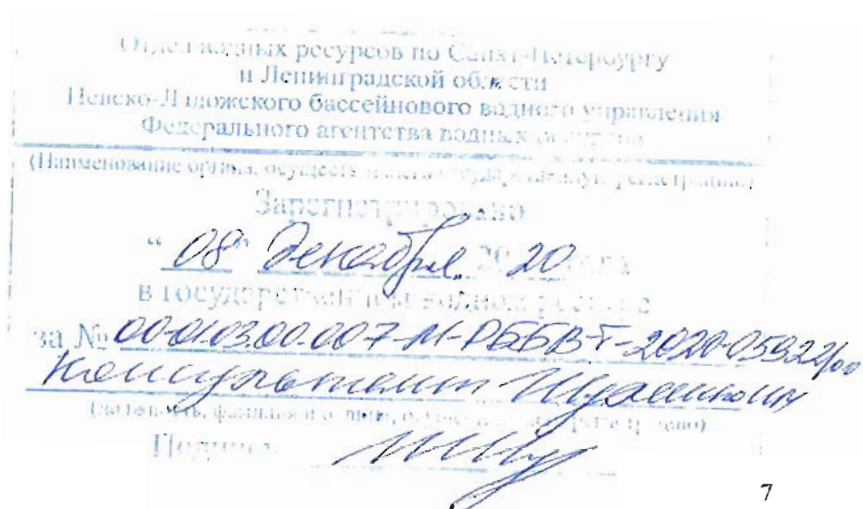 Отдел водных ресурсов по Санкт-Петербургу
и Ленинградской области
Невско-Ладожского бассейнового водного управления
Федерального агентства водных ресурсов
(Наименование органа, осуществившего государственную регистрацию)
Зарегистрировано
“ 08 ” декабря 2020 года
в государственном водном реестре
за № 00-01.03.00.007-М-РББВ-Т-2020-05922/00
Консультант
(должность, фамилия и о. лица, осуществившего регистрацию)
Подпись
7